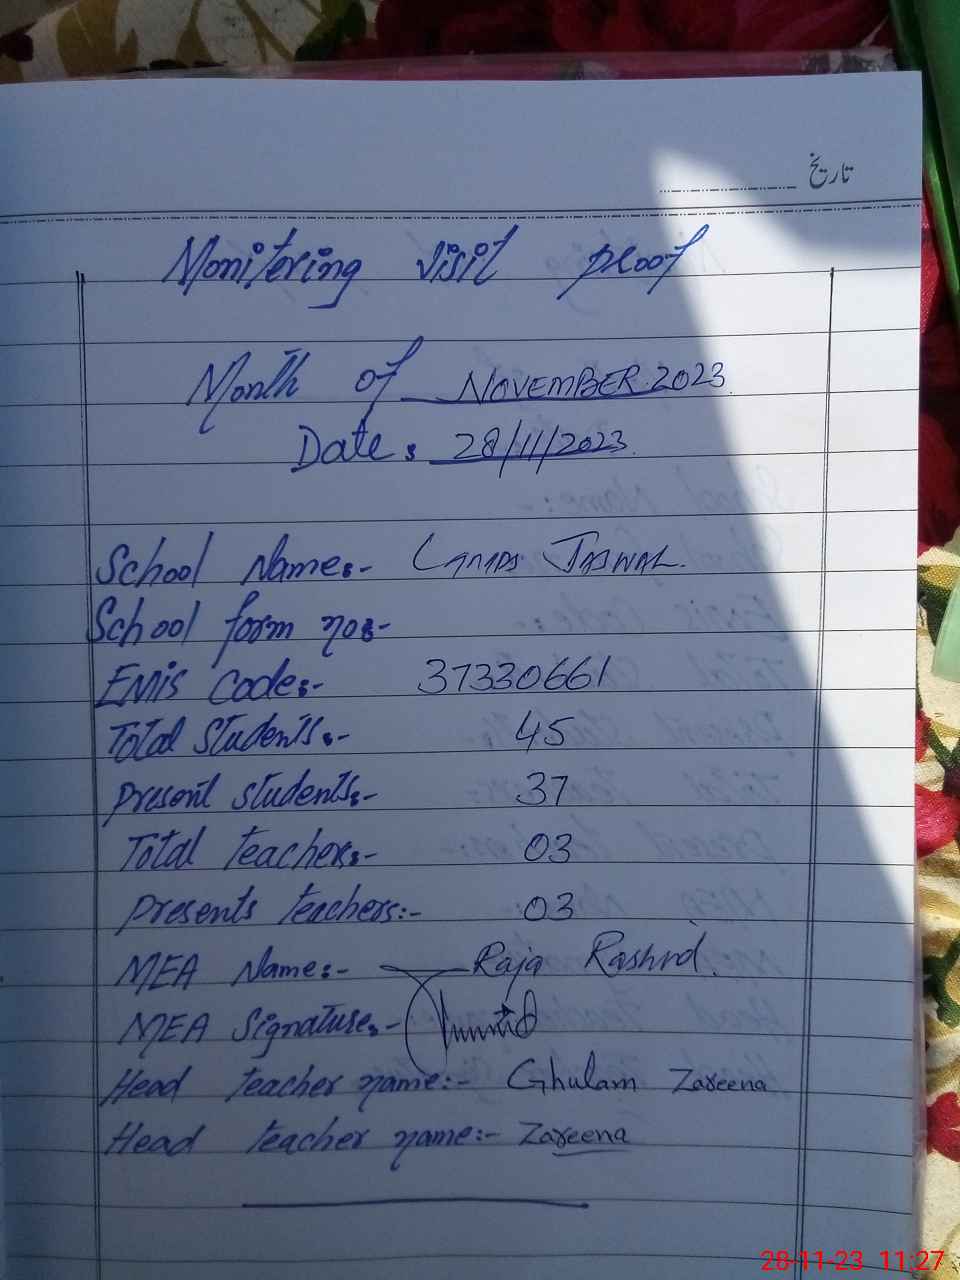 تاریخ
Monitering visit proof
Month of NOVEMBER 2023
Date: 28/11/2023
School Name:- JASWAL
School form no:-
EMIS Code:- 37330661
Total Students:- 45
Present students:- 37
Total teachers:- 03
Presents teachers:- 03
MEA Name:- Raja Rashid.
MEA Signature:-
Head teacher name:- Ghulam Zareena
Head teacher name:- Zareena
28-11-23 11:27